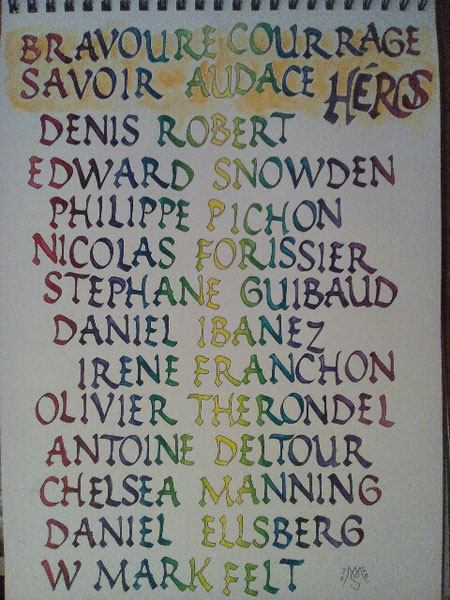 BRAVOURE COURRAGE
SAVOIR AUDACE HÉROS
DENIS ROBERT
EDWARD SNOWDEN
PHILIPPE PICHON
NICOLAS FORISSIER
STEPHANE GUIBAUD
DANIEL IBANEZ
IRENE FRANCHON
OLIVIER THERONDEL
ANTOINE DELTOUR
CHELSEA MANNING
DANIEL ELLSBERG
W MARK FELT